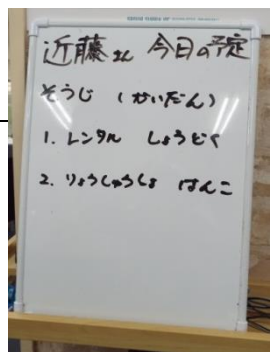 近藤さん 今日の予定
そうじ (かいだん)
1. レンタル しょうどく
2. りょうしゅうしょ はんこ